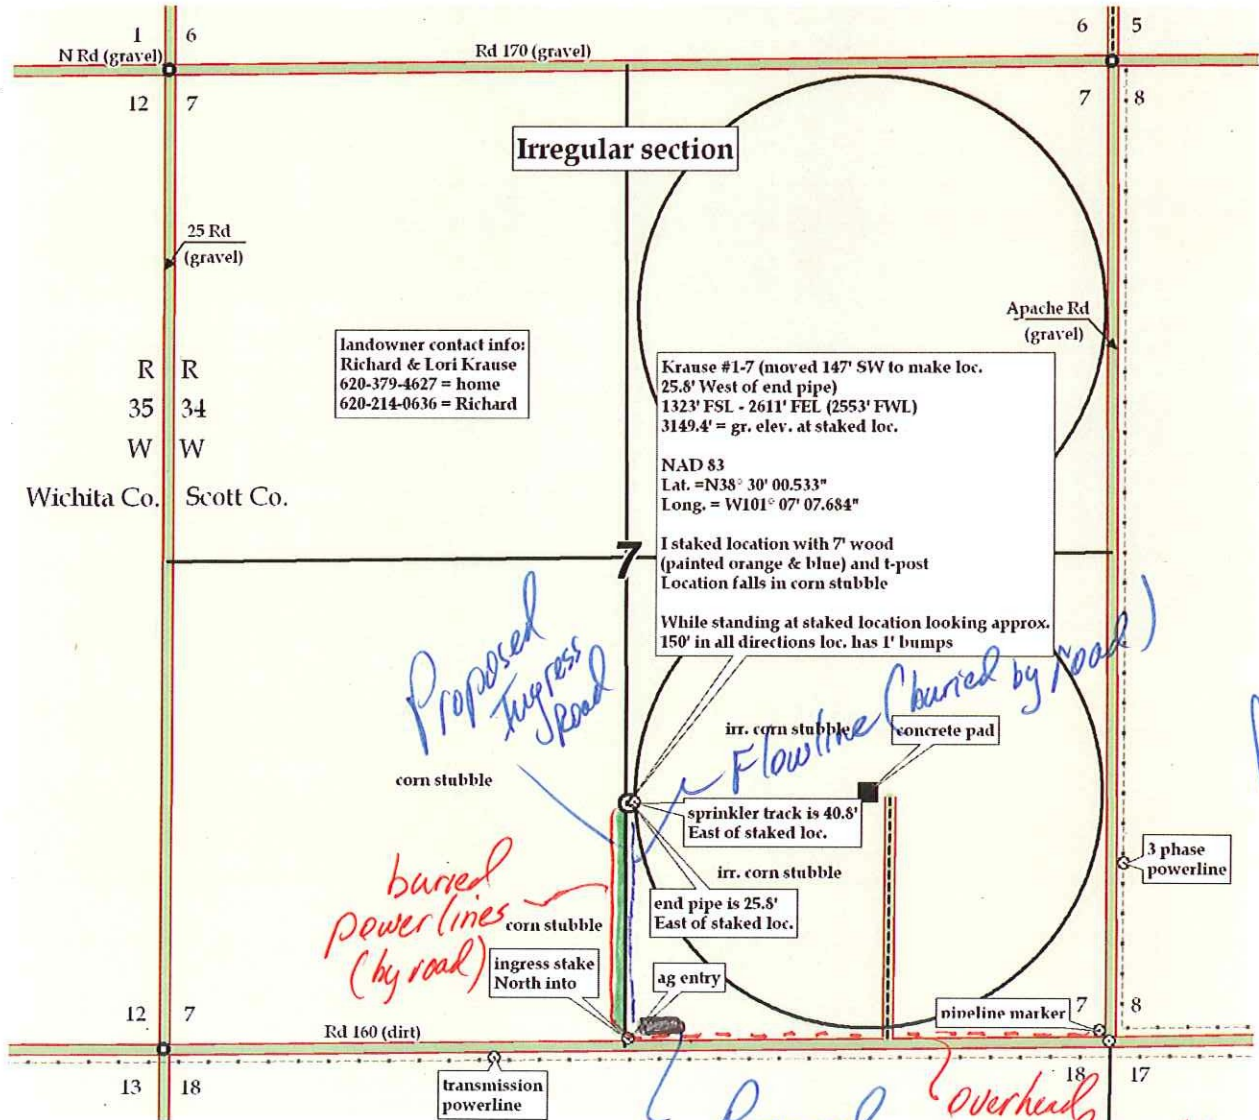 1 6
6 5
N Rd (gravel)
Rd 170 (gravel)
12 7
7 8
Irregular section
25 Rd
(gravel)
Apache Rd
(gravel)
landowner contact info:
Richard & Lori Krause
620-379-4627 = home
620-214-0636 = Richard
R R
35 34
W W
Wichita Co. Scott Co.
Krause #1-7 (moved 147' SW to make loc.
25.8' West of end pipe)
1323' FSL - 2611' FEL (2553' FWL)
3149.4' = gr. elev. at staked loc.
NAD 83
Lat. =N38° 30' 00.533"
Long. = W101° 07' 07.684"
I staked location with 7' wood
(painted orange & blue) and t-post
Location falls in corn stubble
While standing at staked location looking approx.
150' in all directions loc. has 1' bumps
7
Proposed
Ingress
Road
Flowline (buried by road)
irr. corn stubble
concrete pad
corn stubble
sprinkler track is 40.8'
East of staked loc.
3 phase
powerline
irr. corn stubble
buried
powerlines
(by road)
end pipe is 25.8'
East of staked loc.
corn stubble
ingress stake
North into
ag entry
12 7
7 8
pipeline marker
Rd 160 (dirt)
13 18
18 17
transmission
powerline
overhead